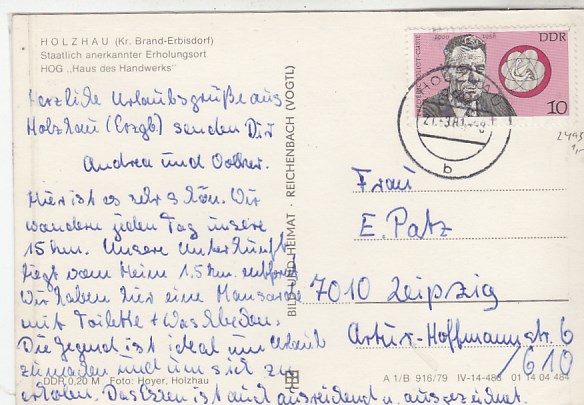 HOLZHAU (Kr. Brand-Erbisdorf)
Staatlich anerkannter Erholungsort
HOG „Haus des Handwerks"
Herzliche Urlaubsgrüße aus
Holzhau (Erzgb.) senden Dir
Andrea und Volker.
Hier ist es sehr schön. Wir
wandern jeden Tag unsere
15 km. Unsere Unterkunft
liegt vom Heim 1,5 km entfernt
Wir haben hier eine Mansarde
mit Toilette + Waschbecken.
Die Gegend ist ideal um Urlaub
zu machen und um sich zu
erholen. Das Essen ist auch ausreichend u. ausgezeichnet.
DDR 0,20 M Foto: Hoyer, Holzhau
BILD UND HEIMAT · REICHENBACH (VOGTL)
1900 1958
DDR
10
21.-3.81-
b
2493
Frau
E. Patz
7010 Leipzig
Artur-Hoffmannstr. 6
/610
A 1/B 916/79 IV-14-483 01 14 04 484